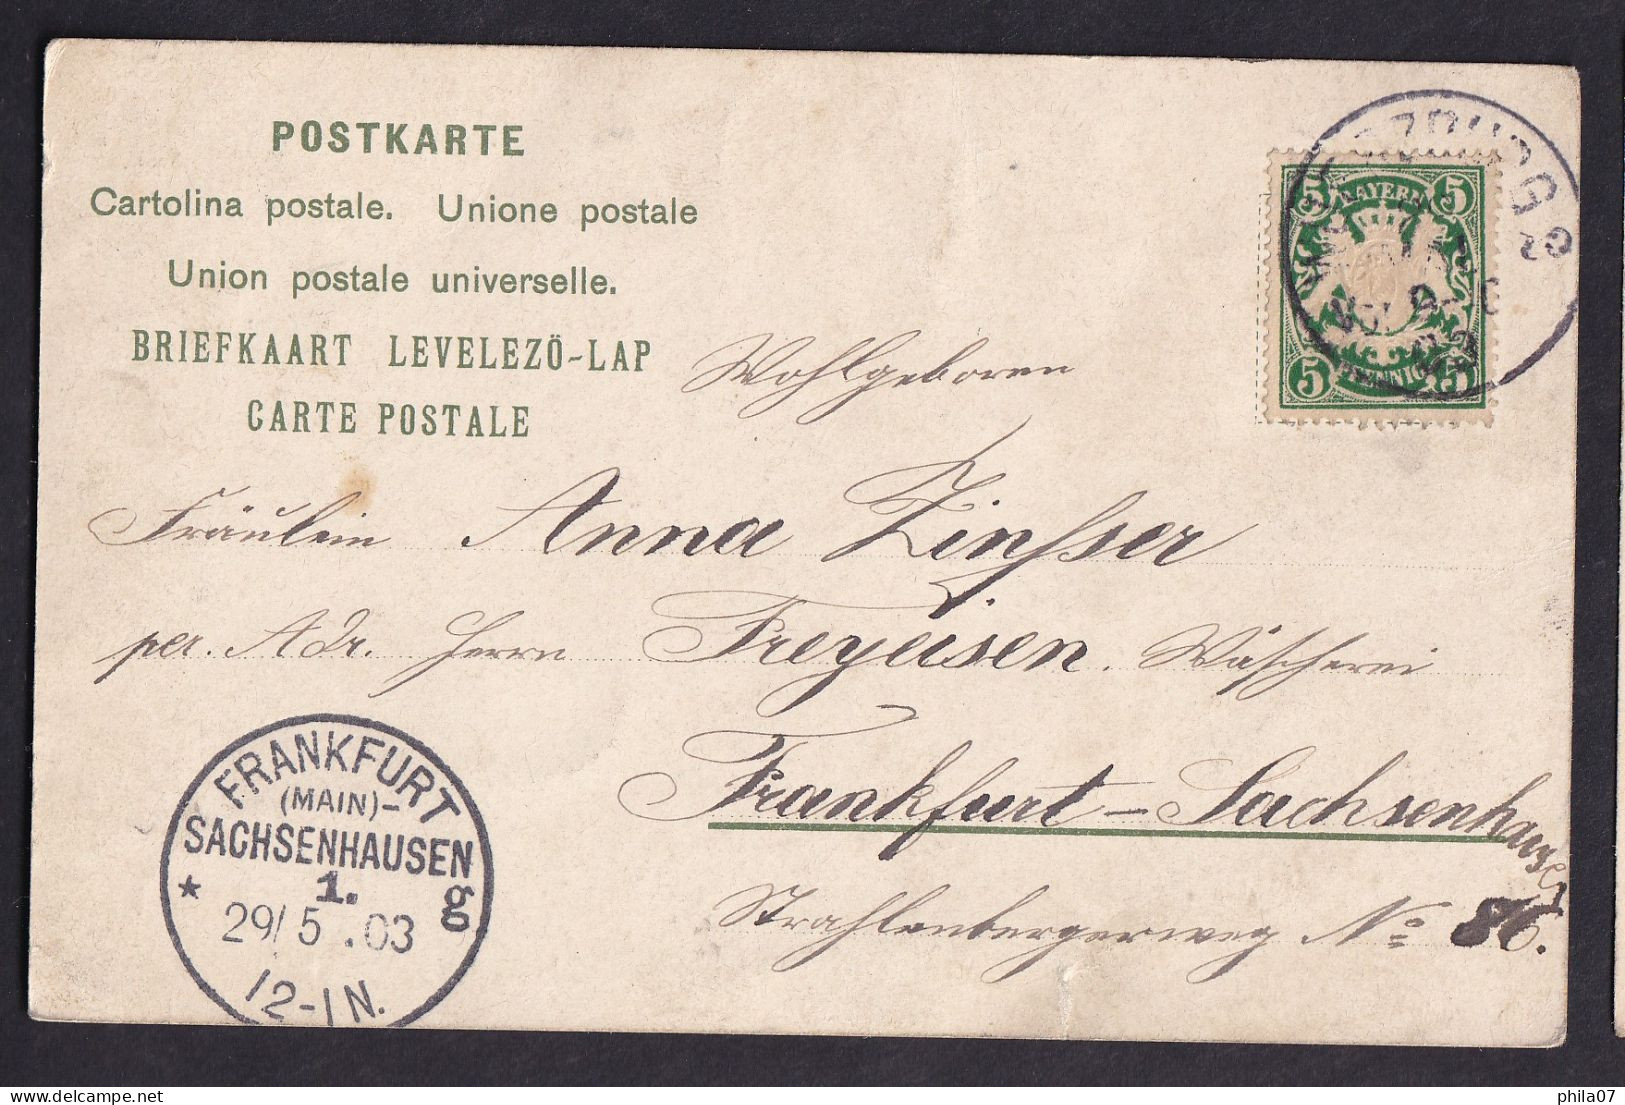 POSTKARTE
Cartolina postale. Unione postale
Union postale universelle.
BRIEFKAART LEVELEZÖ-LAP
CARTE POSTALE
BAYERN
5 5
5 5
PFENNIG
Wohlgeboren
Fräulein Anna Zinsser
per. Adr. Herrn Freyeisen. Wäscherei
Frankfurt-Sachsenhausen
Strahlenbergerweg No 86.
FRANKFURT
(MAIN)-
SACHSENHAUSEN
* 1. g
29/5.03
12-1N.
phila07